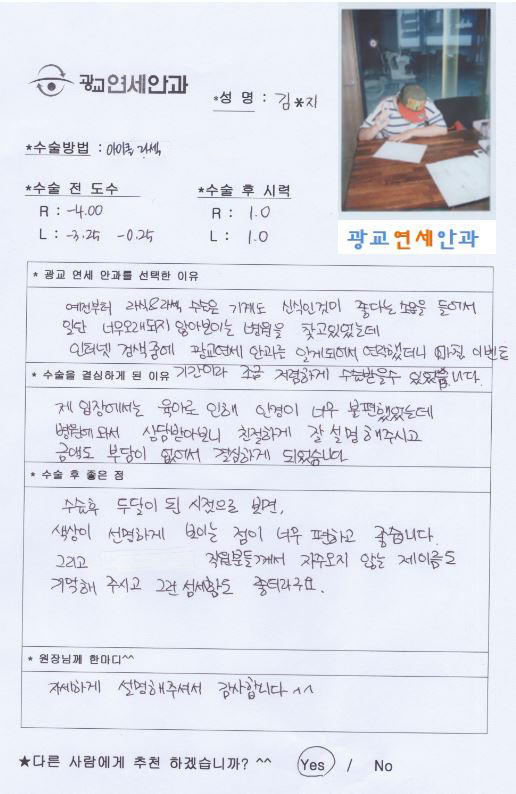 광교연세안과
*성 명 : 김*지
*수술방법 : 아이큐 라섹
*수술 전 도수
*수술 후 시력
R : -4.00
R : 1.0
L : -3.25 -0.25
L : 1.0
광교연세안과
* 광교 연세 안과를 선택한 이유
예전부터 라식&라섹 수술은 기계도 신식인것이 좋다는 소문을 들어서
일단 너무오래되지 않아보이는 병원을 찾고있었는데
인터넷 검색중에 광교연세 안과는 알게되어서 연락했더니 마침 이벤트
기간이라 조금 저렴하게 수술받을수 있었습니다.
* 수술을 결심하게 된 이유
제 입장에서는 육아로 인해 안경이 너무 불편했었는데
병원에와서 상담받아보니 친절하게 잘 설명해주시고
금액도 부담이 없어서 결심하게 되었습니다
* 수술 후 좋은 점
수술후 두달이 된 시점으로 보면,
색상이 선명하게 보이는 점이 너무 편하고 좋습니다.
그리고 직원분들께서 자주오지 않는 제이름도
기억해 주시고 그런 섬세함도 좋더라구요.
* 원장님께 한마디^^
자세하게 설명해주셔서 감사합니다^^
★다른 사람에게 추천 하겠습니까? ^^ Yes / No